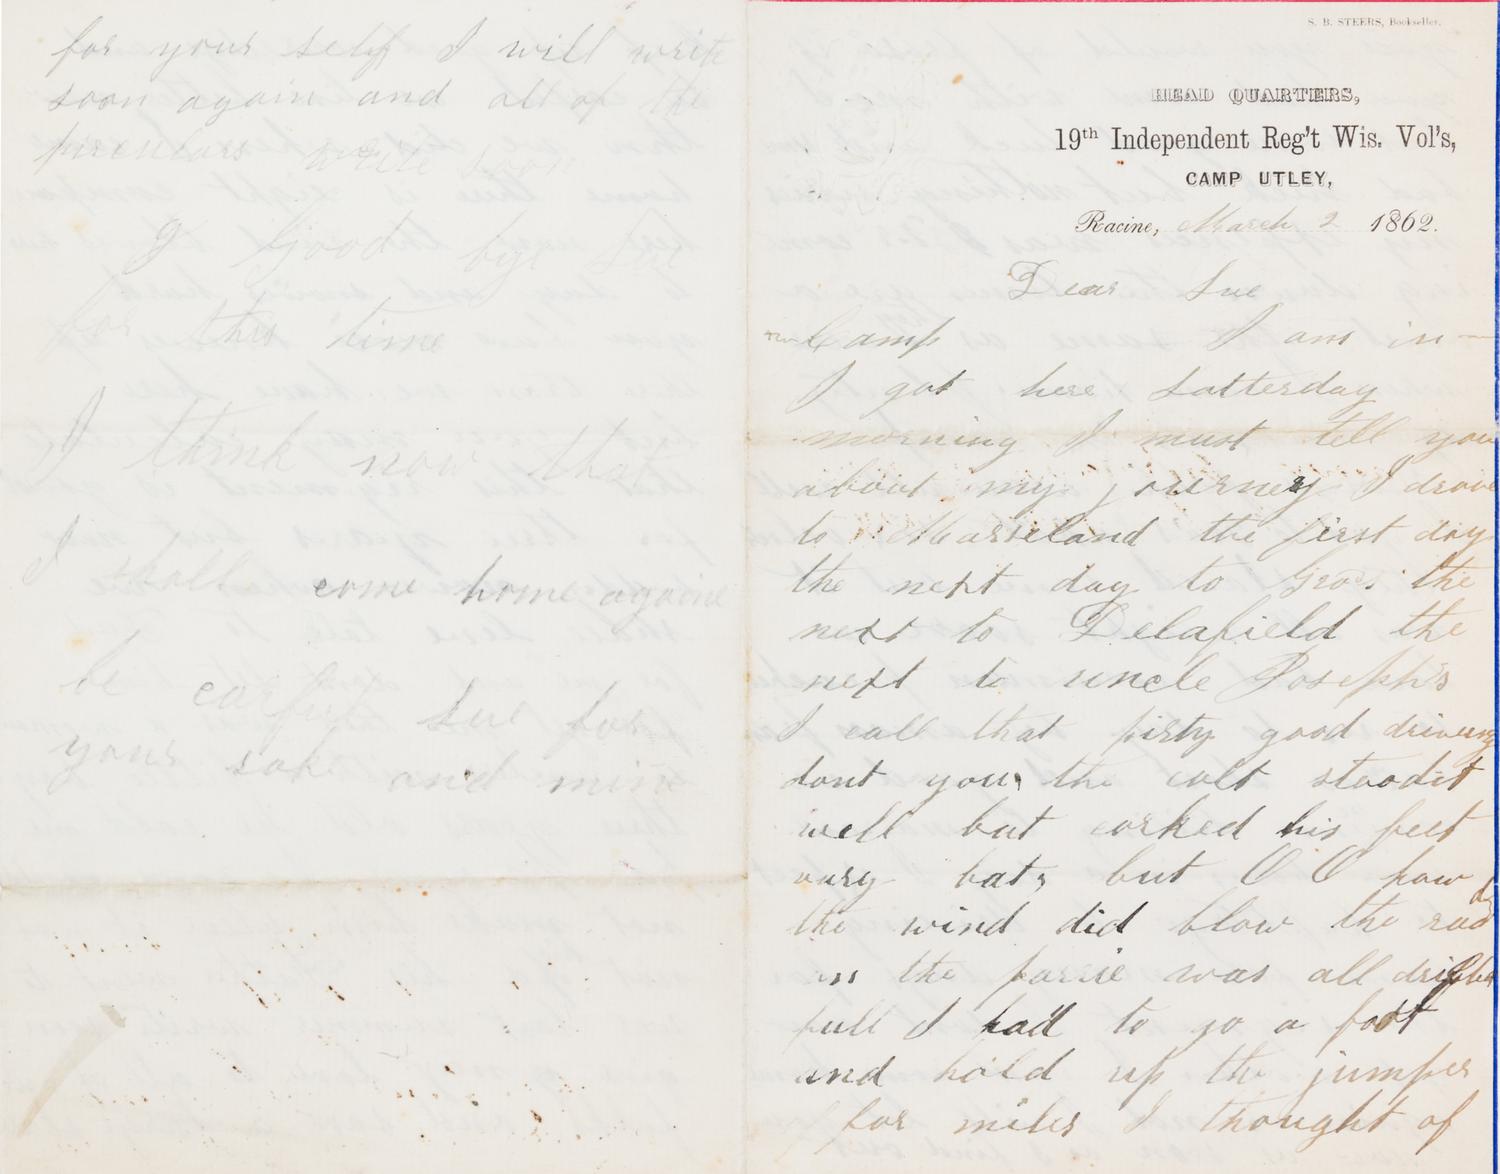 for your self I will write
soon again and all of the
pirenlars write soon
good bye Sue
for this time
I think now that
I shall come home againe
be carful Sue for
your sake and mine
S. B. STEERS, Bookseller.
HEAD QUARTERS,
19th Independent Reg't Wis. Vol's,
CAMP UTLEY,
Racine, March 2 1862.
Dear Sue
Camp I am in
I got here Satterday
morning I must tell you
about my journey I drove
to Marseland the first day
the next day to the
next to Delafield the
next to uncle Joseph's
I call that pirty good driveing
dont you the colt stoodit
well but corked his feet
vary bat but O O how
the wind did blow the rad
in the parrie was all drifted
full I had to go a foot
and hold up the jumper
for miles I thought of